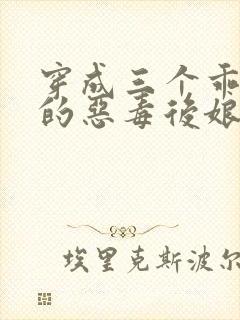 穿成三个乖
的惡毒後娘
埃里克斯波尔